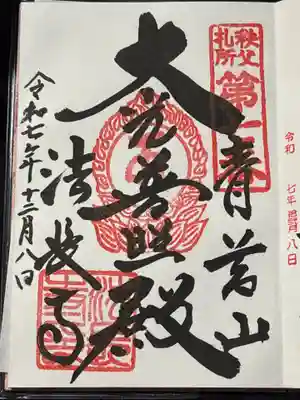 秩父
札所
第
青苔山
大光普照殿
法長寺
令和七年十二月八日
令和 七年 月 八日